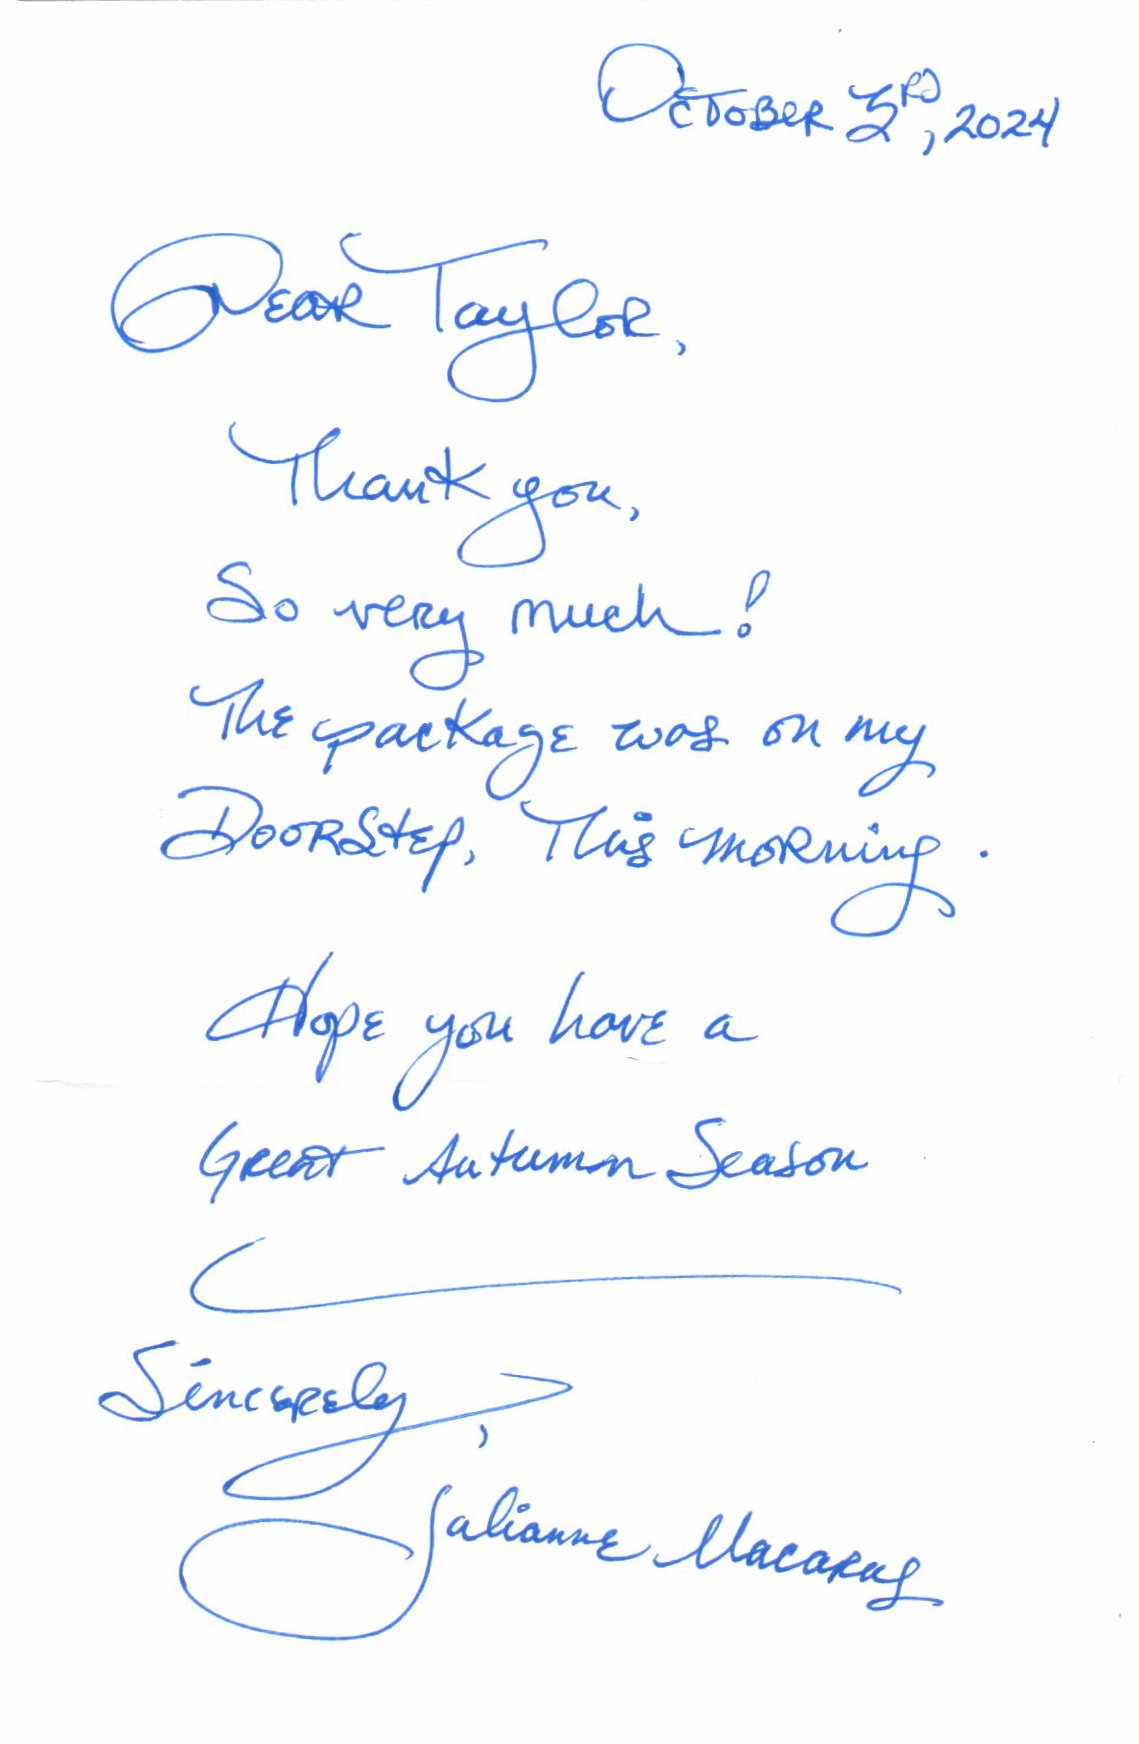 October 3rd, 2024
Dear Taylor,
Thank you,
So very much!
The package was on my
Doorstep, This morning.
Hope you have a
Great Autumn Season
Sincerely,
Julianne Macarus